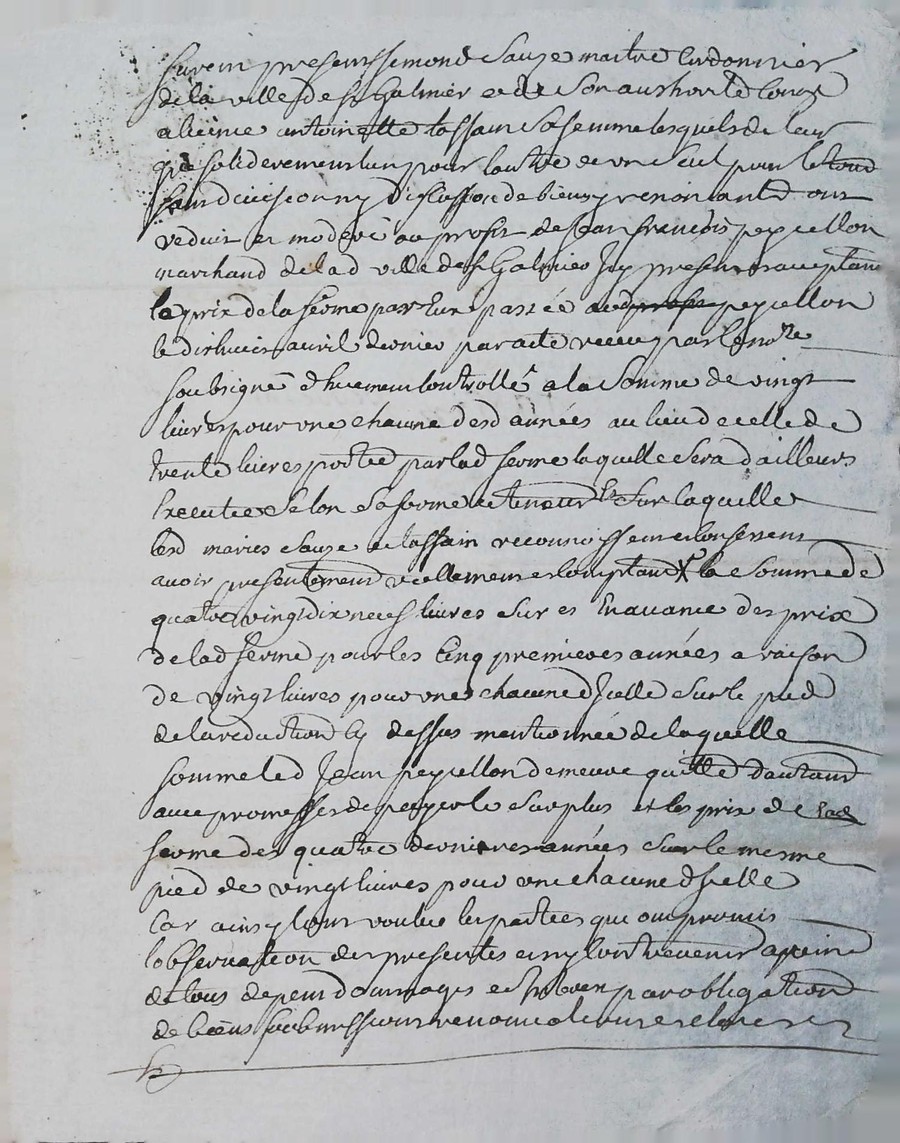 furent presents simond sauze maitre cordonnier
de la ville de st Galmier et de son authorité
antoinette tassain sa femme lesquels de leur
gré soliderement l'un pour l'autre et un seul pour le tout
sans division ny discussion de biens y renoncant ont
reduit et moderé au profit de jean françois peycellon
marchand de lad ville de st Galmier icy present acceptant
le prix de la ferme par eux passée aud peycellon
le dixhuit avril dernier par acte receu par le nore
soubsigné controllé a la somme de vingt
livres pour une chacune desd années au lieu de celle de
trente livres portée par lad ferme laquelle sera d'ailleurs
executée selon sa forme et teneur sur laquelle
lesd mariés sauze et tassain reconnoissent et confessent
avoir presentement reellement et comptant la somme de
quatre vingt dix neuf livres sur et en avance des prix
de lad ferme pour les cinq premieres années a raison
de vingt livres pour une chacune d'icelle sur le pied
de la reduction cy dessus mentionnée de laquelle
somme led jean peycellon demeure quitte d'autant
avec promesse de payer le surplus et les prix de lad
ferme des quatre dernieres années sur le mesme
pied de vingt livres pour une chacune d'icelle
car ainsy l'ont voulu les parties qui ont promis
l'observation des presentes et ny contrevenir a peine
de tous depens dommages et par obligation
de biens soubmissions renonciations et clauses